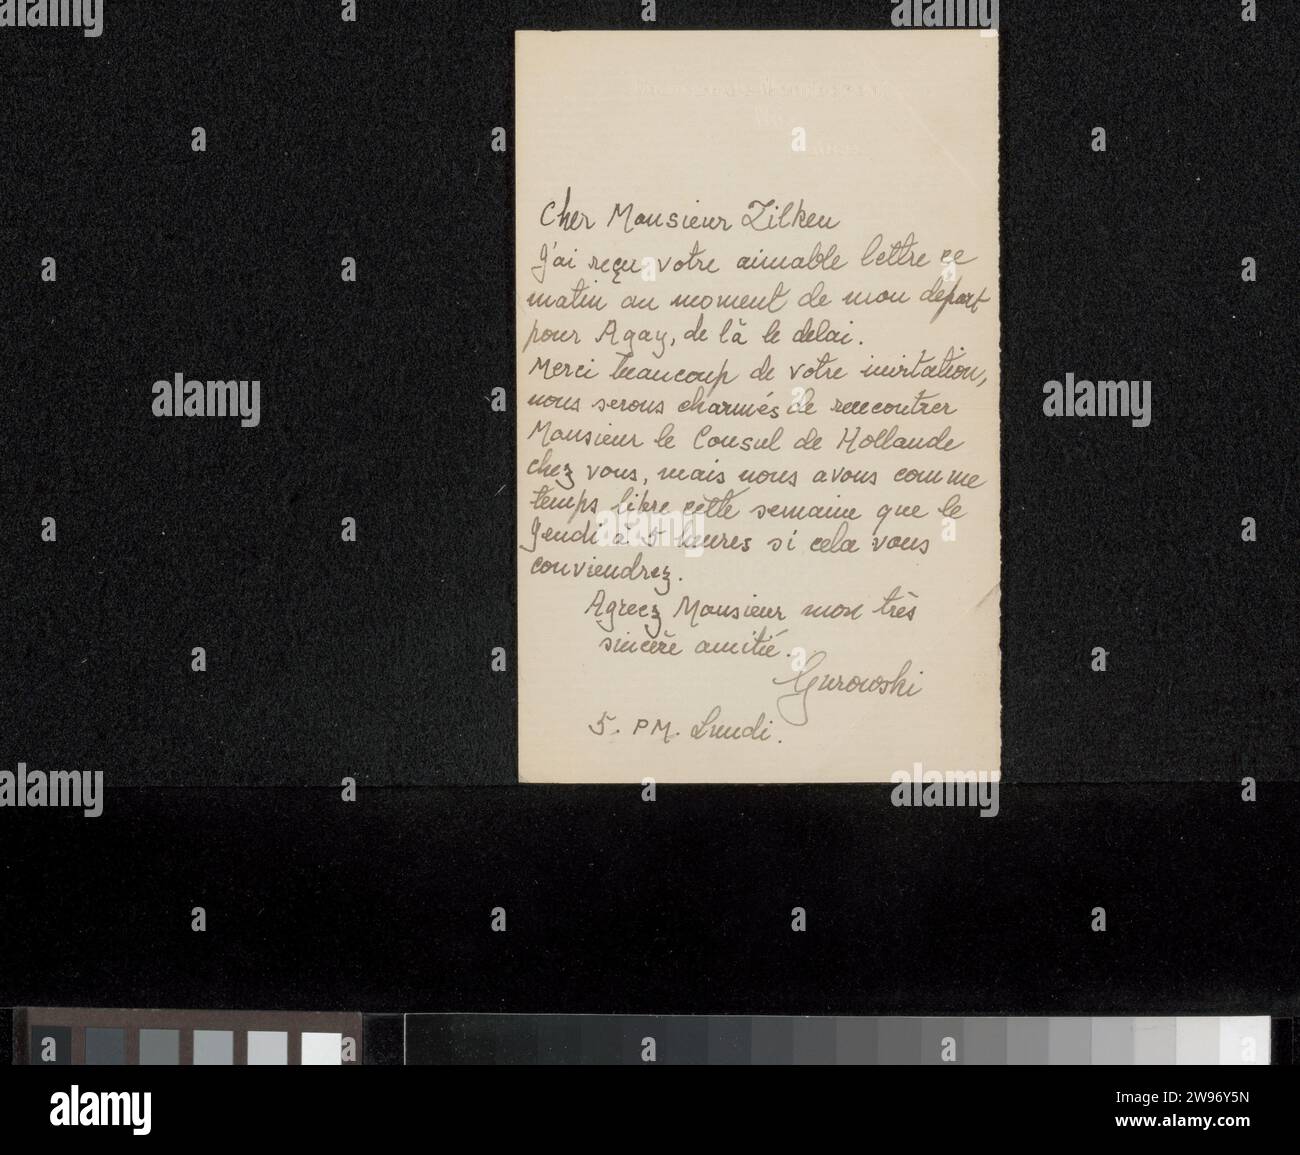 Cher Monsieur Zilken
J'ai reçu votre aimable lettre ce
matin au moment de mon depart
pour Agay, de là le delai.
Merci beaucoup de votre invitation,
nous serons charmés de rencontrer
Monsieur le Consul de Hollande
chez vous, mais nous avons comme
temps libre cette semaine que le
Jeudi à 5 heures si cela vous
conviendrez.
Agreez Monsieur mon très
sincère amitié.
Gurowski
5. PM. Lundi.
alamy
Image ID: 2W96Y5N
www.alamy.com